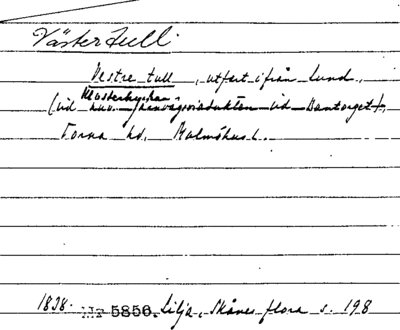 Västertull
Vestre tull, utfart ifrån Lund,
Klosterkyrkan,
(vid nuv. järnvägsviadukten vid Bantorget),
Torna hd, Malmöhus l.
1838. Nr 5850. Lilja, Skånes flora s. 198